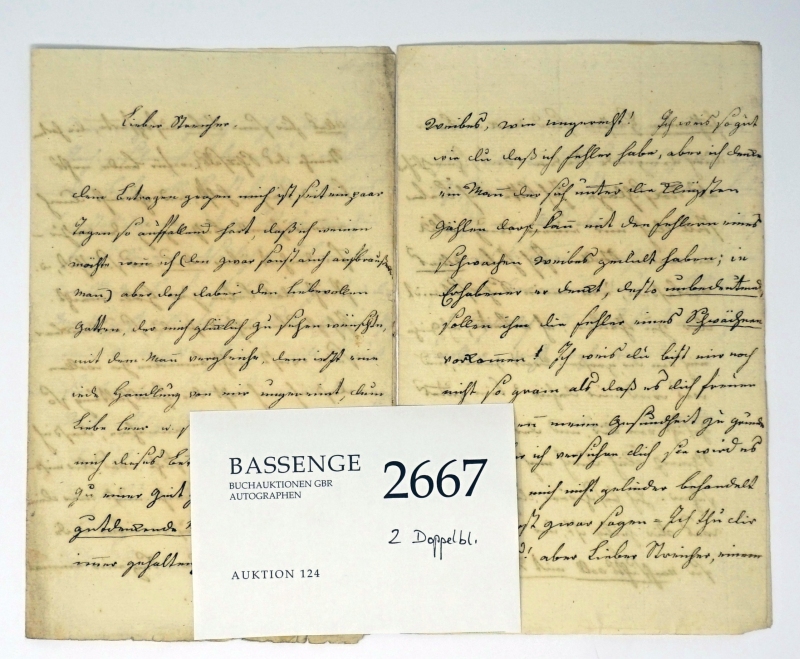 Lieber Streicher.
Dein Betragen gegen mich ist seit ein paar
Tagen so auffallend hart, daß ich weinen
möchte wenn ich (den zwar sonst auch aufbrausenden
Mann) aber doch dabei den liebevollen
Gatten, der mich glücklich zu sehen wünschte,
mit dem Mann vergleiche, dem jezt eine
jede Handlung von mir ungereimt, dum
Liebe leer u.
mich dieses
zu einer Zeit
gutdenkende
immer gehalten
Weibes, wie ungerecht! Ich weis so gut
wie du daß ich Fehler habe, aber ich denke
ein Mann der sich unter die Klügsten
Zählen darf, kann mit den Fehlern eines
schwachen Weibes geduld haben; je
Erhabener er denkt, desto unbedeutender
sollen ihm die Fehler eines Schwächern
vorkommen! Ich weis du bist mir noch
nicht so gram als daß es dich freuen
meine Gesundheit zu Grunde
ich versichere dich sie wird es
mich nicht gelinder behandelst
zwar sagen = Ich thu dir
! aber Lieber Streicher, einem
BASSENGE
BUCHAUKTIONEN GBR
AUTOGRAPHEN
2667
2 Doppelbl.
AUKTION 124